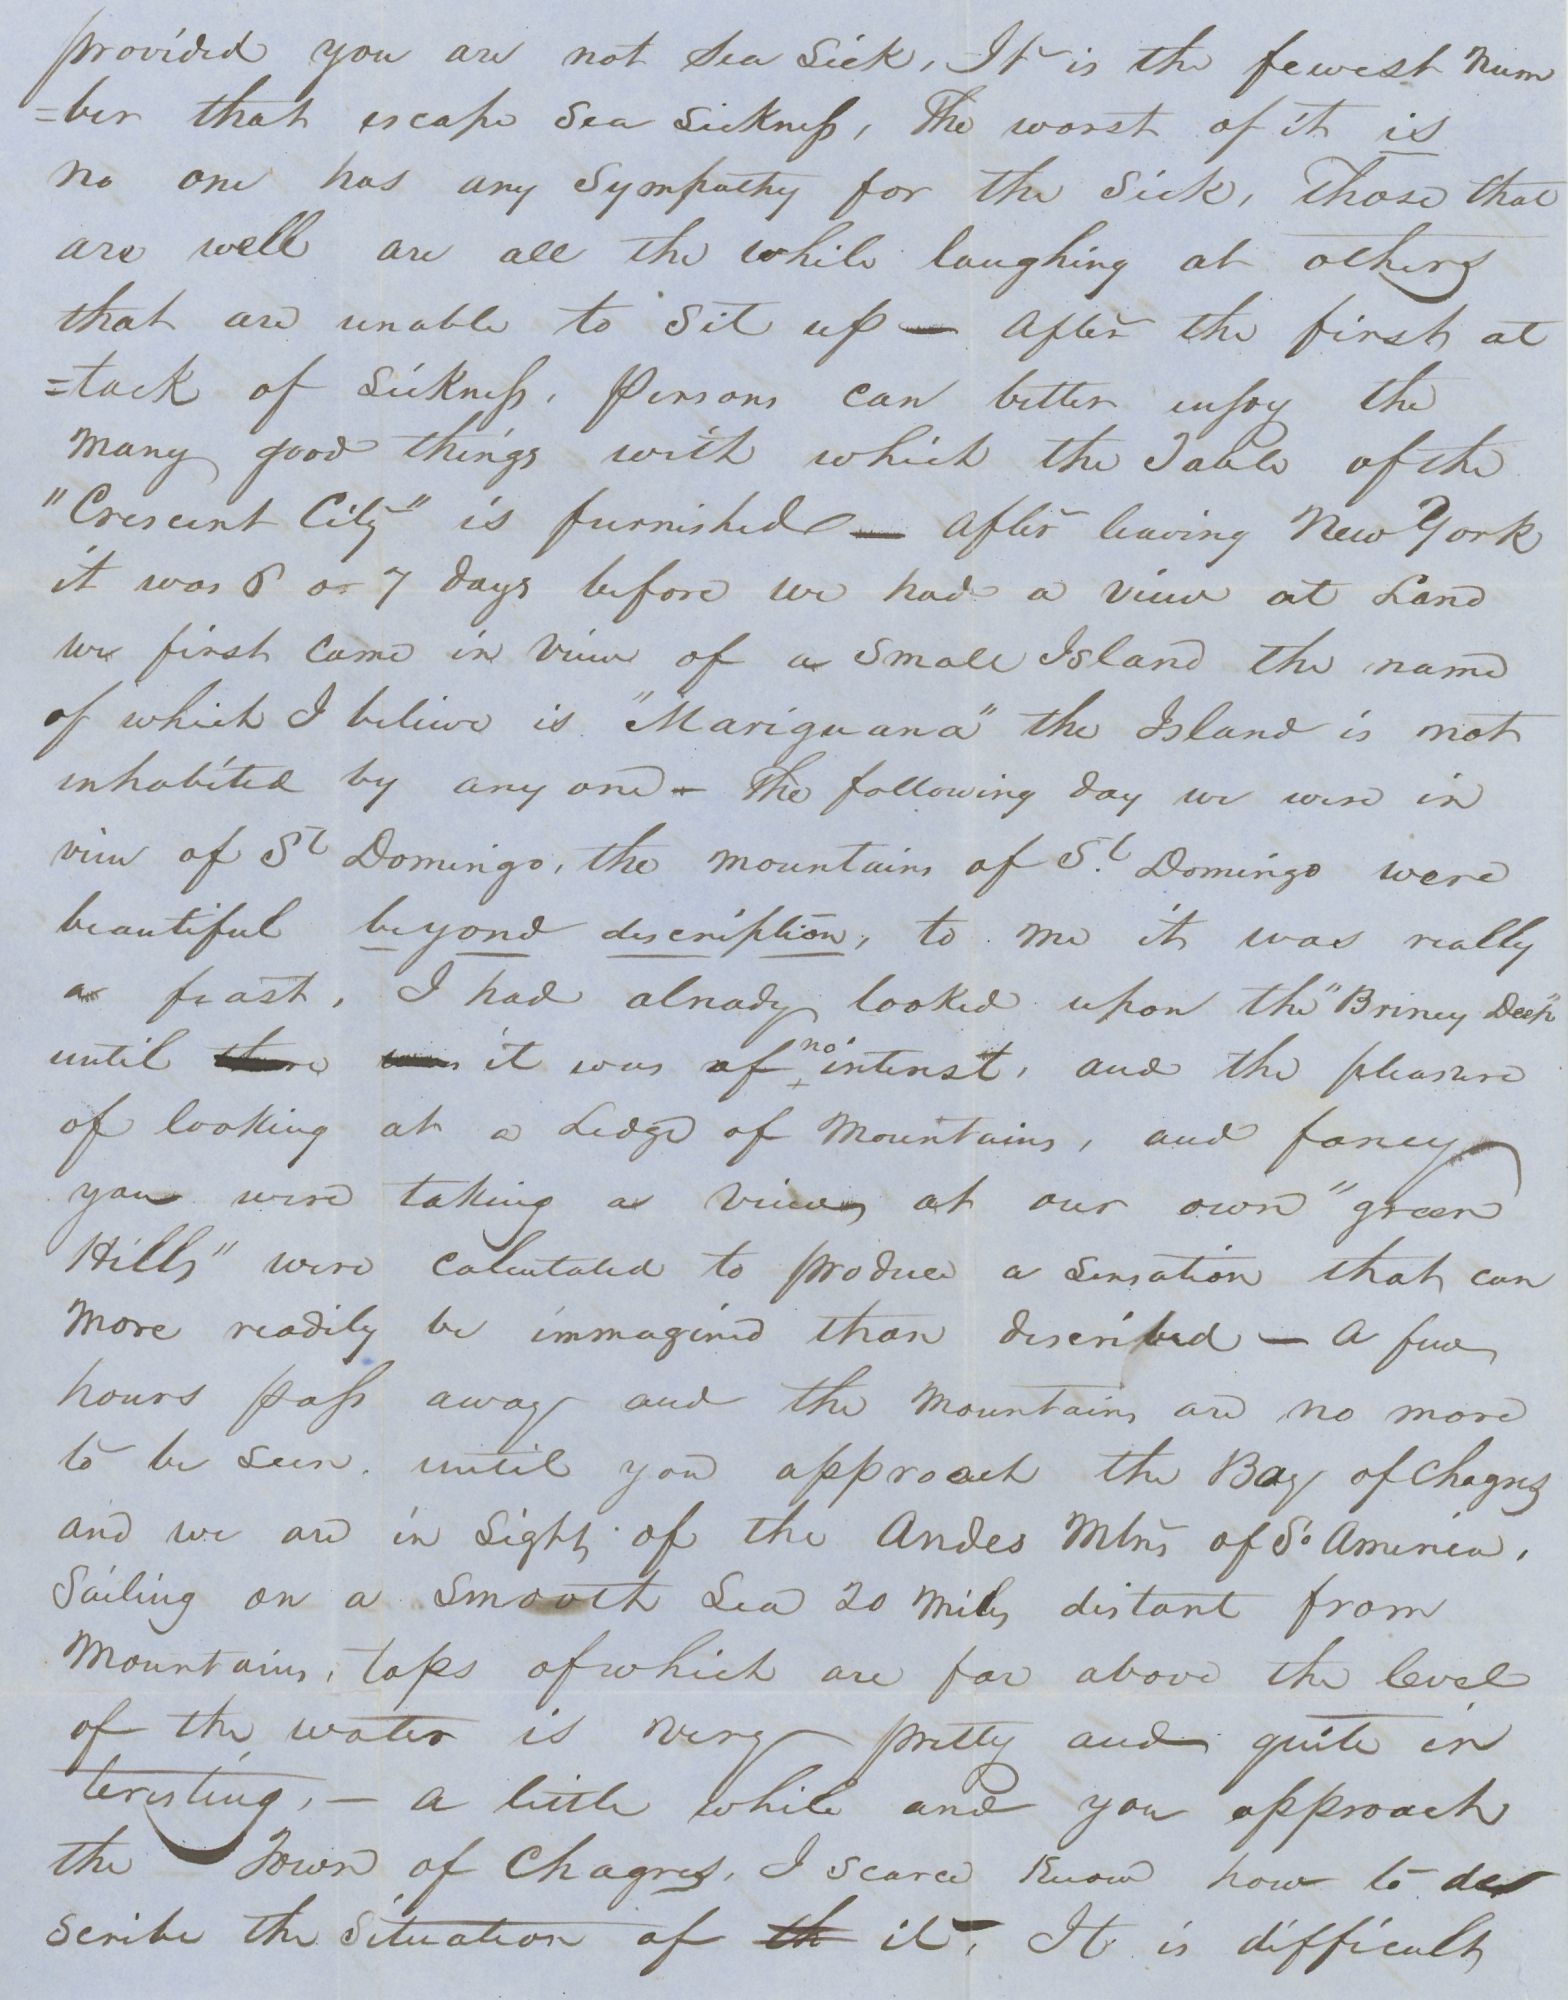 provided you are not Sea Sick, It is the fewest Num
=ber that escape Sea Sickness, The worst of it is
no one has any Sympathy for the Sick, Those that
are well are all the while laughing at others
that are unable to Sit up — After the first at
=tack of Sickness, Persons can better enjoy the
Many good things with which the Table of the
"Crescent City" is furnished — After leaving New York
it was 6 or 7 days before we had a view at Land
we first came in view of a Small Island the name
of which I believe is "Mariguana" the Island is not
inhabited by any one — The following day we were in
view of St Domingo, the mountains of St. Domingo were
beautiful beyond description, to me it was really
a feast, I had already looked upon the "Briney Deep"
until there was it was of no interest, and the pleasure
of looking at a Ledge of Mountains, and fancy
you were taking a view at our own "green
Hills" were calculated to produce a sensation that can
More readily be immagined than described — A few
hours pass away and the Mountains are no more
to be seen, until you approach the Bay of Chagres
and we are in Sight of the Andes Mtns of So America,
Sailing on a Smooth Sea 20 Miles distant from
Mountains, tops of which are far above the level
of the water is very pretty and quite in
teresting, — A little while and you approach
the Town of Chagres, I scarce know how to de
scribe the Situation of th it, It is difficult